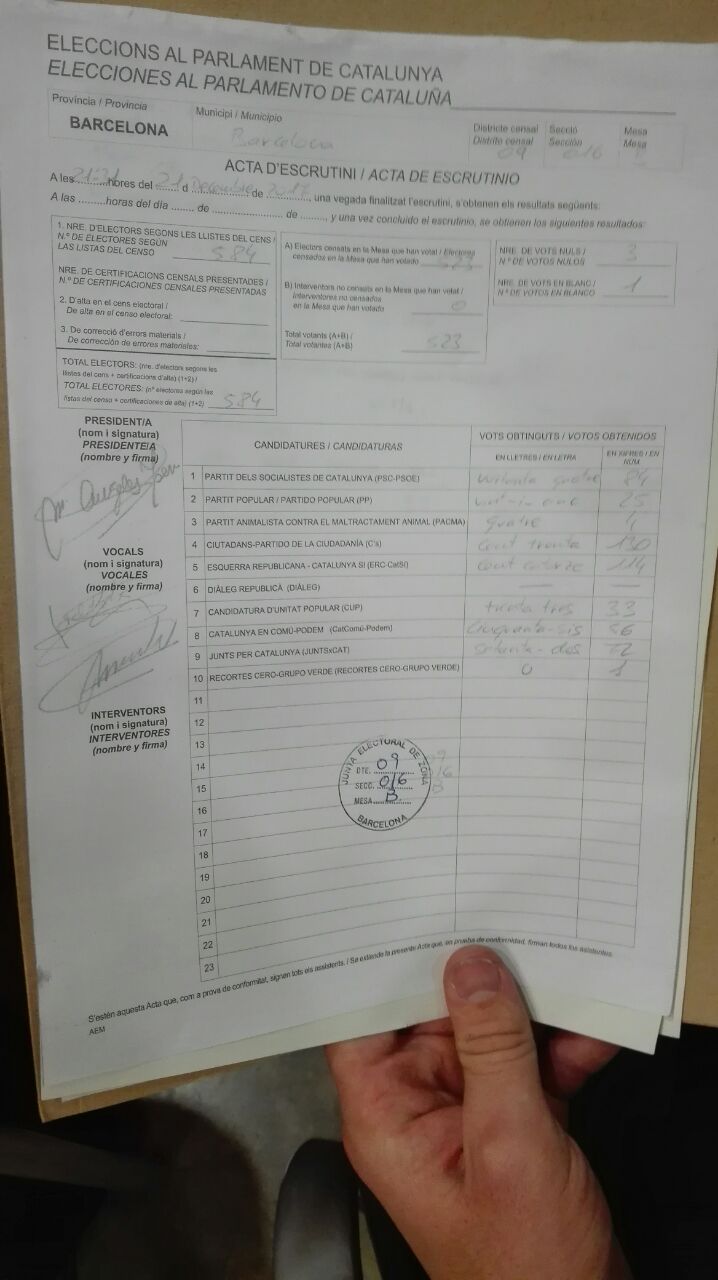 ELECCIONS AL PARLAMENT DE CATALUNYA
ELECCIONES AL PARLAMENTO DE CATALUÑA
Província / Provincia
BARCELONA
Municipi / Municipio
Barcelona
Districte censal
Distrito censal
09
Secció
Sección
016
Mesa
Mesa
B
ACTA D'ESCRUTINI / ACTA DE ESCRUTINIO
A les ........ hores del 21 d Decembre de 2017, una vegada finalitzat l'escrutini, s'obtenen els resultats següents:
A las ........ horas del día ...... de .................. de ......., y una vez concluido el escrutinio, se obtienen los siguientes resultados:
1. NRE. D'ELECTORS SEGONS LES LLISTES DEL CENS /
N.º DE ELECTORES SEGÚN
LAS LISTAS DEL CENSO 584
NRE. DE CERTIFICACIONS CENSALS PRESENTADES /
N.º DE CERTIFICACIONES CENSALES PRESENTADAS
2. D'alta en el cens electoral /
De alta en el censo electoral:
3. De correcció d'errors materials /
De corrección de errores materiales:
TOTAL ELECTORS: (nre. d'electors segons les
llistes del cens + certificacions d'alta) (1+2) /
TOTAL ELECTORES: (nº electores según las
listas del censo + certificaciones de alta) (1+2) 584
A) Electors censats en la Mesa que han votat / Electores
censados en la Mesa que han votado 523
B) Interventors no censats en la Mesa que han votat /
Interventores no censados
en la Mesa que han votado 0
Total votants (A+B) /
Total votantes (A+B) 523
NRE. DE VOTS NULS /
N.º DE VOTOS NULOS 3
NRE. DE VOTS EN BLANC /
N.º DE VOTOS EN BLANCO 1
PRESIDENT/A
(nom i signatura)
PRESIDENTE/A
(nombre y firma)
VOCALS
(nom i signatura)
VOCALES
(nombre y firma)
INTERVENTORS
(nom i signatura)
INTERVENTORES
(nombre y firma)
CANDIDATURES / CANDIDATURAS
VOTS OBTINGUTS / VOTOS OBTENIDOS
EN LLETRES / EN LETRA
EN XIFRES / EN NÚM.
1 PARTIT DELS SOCIALISTES DE CATALUNYA (PSC-PSOE) vuitanta quatre 84
2 PARTIT POPULAR / PARTIDO POPULAR (PP) 25
3 PARTIT ANIMALISTA CONTRA EL MALTRACTAMENT ANIMAL (PACMA) quatre 4
4 CIUTADANS-PARTIDO DE LA CIUDADANÍA (C's) cent trenta 130
5 ESQUERRA REPUBLICANA - CATALUNYA SÍ (ERC-CatSí) cent catorze 114
6 DIÀLEG REPUBLICÀ (DIÀLEG) — —
7 CANDIDATURA D'UNITAT POPULAR (CUP) trenta tres 33
8 CATALUNYA EN COMÚ-PODEM (CatComú-Podem) cinquanta-sis 56
9 JUNTS PER CATALUNYA (JUNTSxCAT) setanta-dos 72
10 RECORTES CERO-GRUPO VERDE (RECORTES CERO-GRUPO VERDE) 0 1
11
12
13
14
15
16
17
18
19
20
21
22
23
JUNTA ELECTORAL DE ZONA
DTE. 09
SECC. 016
MESA B
BARCELONA
S'estén aquesta Acta que, com a prova de conformitat, signen tots els assistents. / Se extiende la presente Acta que, en prueba de conformidad, firman todos los asistentes.
AEM